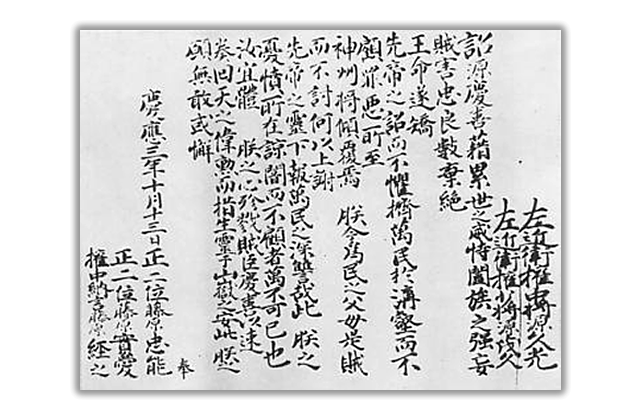 左近衛權中將源久光
左近衛權少將源茂久
詔源慶喜藉累世之威恃闔族之强妄
賊害忠良數棄絶
王命遂矯
先帝之詔而不懼擠萬民於溝壑而不
顧罪惡所至
神州將傾覆焉 朕今為民之父母是賊
而不討何以上謝
先帝之靈下報萬民之深讐哉此 朕之
憂憤所在諒闇而不顧者萬不可已也
汝宜體 朕之心殄戮賊臣慶喜以速
奏回天之偉勳而措生靈于山嶽之安此 朕之
願無敢或懈
慶應三年十月十三日 正二位藤原忠能
正二位藤原實愛
權中納言藤原經之
奉